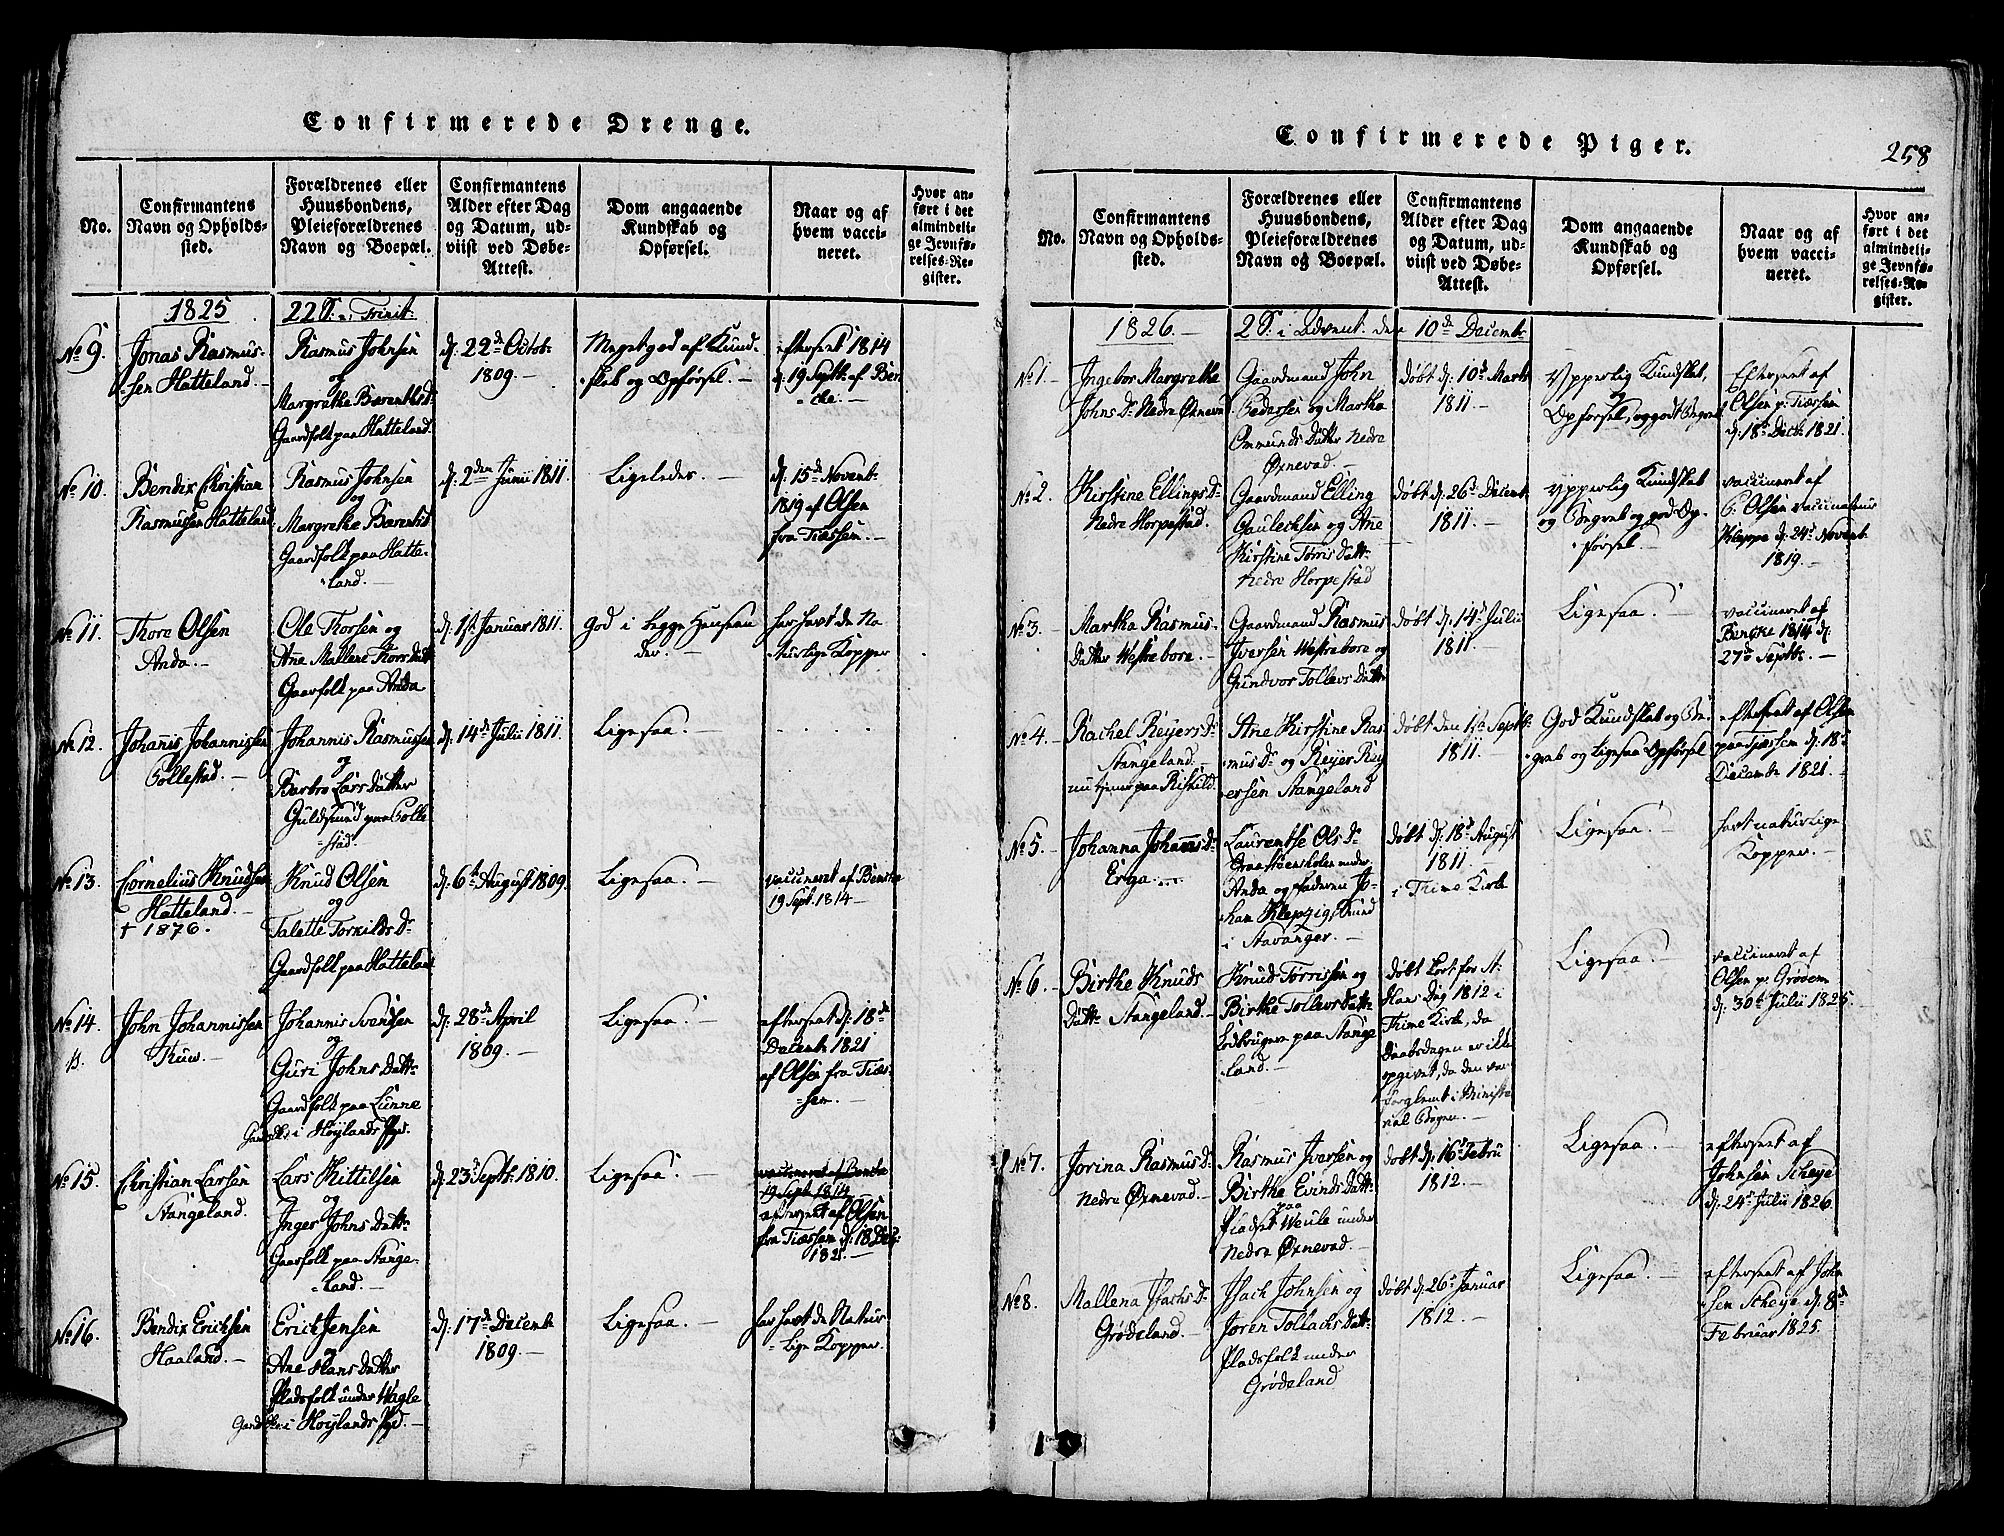 Confirmerede Drenge.
No.
Confirmantens
Navn og Opholds-
sted.
Forældrenes eller
Huusbondens,
Pleieforældrenes
Navn og Boepæl.
Confirmantens
Alder efter Dag
og Datum, ud-
viist ved Døbe-
Attest.
Dom angaaende
Kundskab og
Opførsel.
Naar og af
hvem vacci-
neret.
Hvor an-
ført i det
almindeli-
ge Jevnfø-
relses-Re-
gister.
1825
22 S. Trinit:
No 9
Jonas Rasmus-
sen Hatteland.
Rasmus Johnsen
og
Margrethe Berentsd:
Gaardfolk paa Hatteland.
d. 22de Octob:
1809.
Meget god af Kund-
skab og Opførsel.
efterseet 1814
d. 19 Septb. af Ben
No 10.
Bendix Christian
Rasmussen Hatteland
Rasmus Johnsen
og
Margrethe Berentsd
Gaardfolk paa Hatte-
land.
d. 2den Junii 1811.
Ligeledes.
d. 15de Novemb:
1819 af Olsen
fra Tiæssem.
No 11.
Thore Olsen
Anda.
Ole Thorsen og
Ane Mallene Thorsdatt
Gaarfolk paa Anda
d. 1ste Januar 1811.
God i begge Henseen
der.
har havt de Na
turlige Kopper
No 12.
Johanis Johannissen
Tollestad.
Johannis Rasmussen
og
Barbro Lars Datter
Guldsmed paa Tolle
stad.
d. 14de Julii 1811.
Ligesaa.
No 13.
Cornelius Knudsen
Hatteland.
† 1876.
Knud Olsen
og
Talette Torkilds D:
Gaardfolk paa Hatteland
d. 6te August 1809.
Ligesaa.
vaccineret af Bencke
19 Sept. 1814.
No 14.
John Johannissen
Johannis Svendsen
og
Guri Johns Datt:
Gaardfolk paa Lunne
i Høylands Pgd.
d. 28de April
1809.
Ligesaa.
efterseet d. 18de
Decemb: 1821
af Olsen fra Tiæs-
sem.
No 15.
Christian Larsen
Stangeland.
Lars Kittilsen
og
Inger Johns Datt:
Gaarfolk paa Stange-
land.
d. 23de Septb: 1810.
Ligesaa.
vaccineret af Bencke
19 Sept. 1814
efterseet af Olsen
fra Tiæssem d. 18 Dec:
1821.
No 16.
Bendix Ericksen
Haaland.
Erick Jensen
og
Ane Hans Datter
Pladsfolk under Wagle
i Høylands Pgd.
d. 17de Decemb:
1809.
Ligesaa.
har havt de Natur
lige Kopper.
Confirmerede Piger.
258
No.
Confirmantens
Navn og Opholds-
sted.
Forældrenes eller
Huusbondens,
Pleieforældrenes
Navn og Boepæl.
Confirmantens
Alder efter Dag
og Datum, ud-
viist ved Døbe-
Attest.
Dom angaaende
Kundskab og
Opførsel.
Naar og af
hvem vacci-
neret.
Hvor an-
ført i det
almindeli-
ge Jevnfø-
relses-Re-
gister.
1826.
2 S. i Advent. den 10de Decemb
No 1.
Ingebor Margrethe
Johns D: Nedre Øxnevad
Gaardmand John
Pedersen og Martha
Ommunds Datter Nedre
Øxnevad.
døbt d. 10de Marts
1811.
Ypperlig Kundskab,
og
Opførsel, og godt Begreb
Efterseet af
Olsen p: Tiæssem
d. 18de Decb: 1821.
No 2.
Kirstine Ellings D:
Nedre Horpestad.
Gaardmand Elling
Gautechsen og Ane
Kirstine Tørris Datt:
Nedre Horpestad
døbt d. 26de Decemb
1811.
Ypperlig Kundskab
og Begreb og god Op-
førsel.
vaccineret af
P. Olsen vaccinateur
Kleppe d. 24de Novemb
1819.
No 3.
Martha Rasmus-
Datter Westrebore.
Gaardmand Rasmus
Iversen Westrebore og
Gundvor Tollevs Datter
døbt d. 14de Julii
1811.
Ligesaa.
vaccineret af
Bencke 1814 d.
27de Septb.
No 4.
Rachel Reyers D:
Stangeland.
nu tjener paa Riskild.
Ane Kirstine Ras
mus D: og Reyer Rey
ersen Stangeland
døbt den 1ste Septb:
1811.
God Kundskab og Be
greb og Ligesaa Opførsel
efterseet af Olsen
paa Tjæssem d. 18de
Decemb 1821.
No 5.
Johanna Johanns D:
Erga
Laurentse Ols D:
under
Anda og Faderen Jo-
han Kleppzig, Smed
i Stavanger.
døbt d. 18de August
1811.
i Thime Kirk
Ligesaa.
havt naturlige
Kopper.
No 6.
Birthe Knuds
Datt: Stangeland.
Knud Tørrissen og
Birthe Tollevs Datt:
Lødbrugere paa Stange
land.
døbt kort før St.
Hans Dag 1812 i
Thime Kirk, da
Daabsdagen er ikke
opgivet, da den var
forglemt i Ministe
rial Bogen.
Ligesaa.
vaccineret af
Olsen p. Grødem
d. 30te Julii 1825.
No 7.
Jorina Rasmus D:
Nedre Øxnevad.
Rasmus Iversen og
Birthe Evinds Datt:
paa
Pladset Weule under
Nedre Øxnevad.
døbt d. 16de Febru
1812.
Ligesaa.
efterseet af
Johnsen Scheye
d. 24de Julii 1826.
No 8.
Mallena Isachs D:
Grødeland.
Isach Johnsen og
Joren Tollachs Datt:
Pladsfolk under
Grødeland
døbt d. 26de Januar
1812.
Ligesaa.
efterseet af John
sen Scheye d. 8de
Februar 1825.